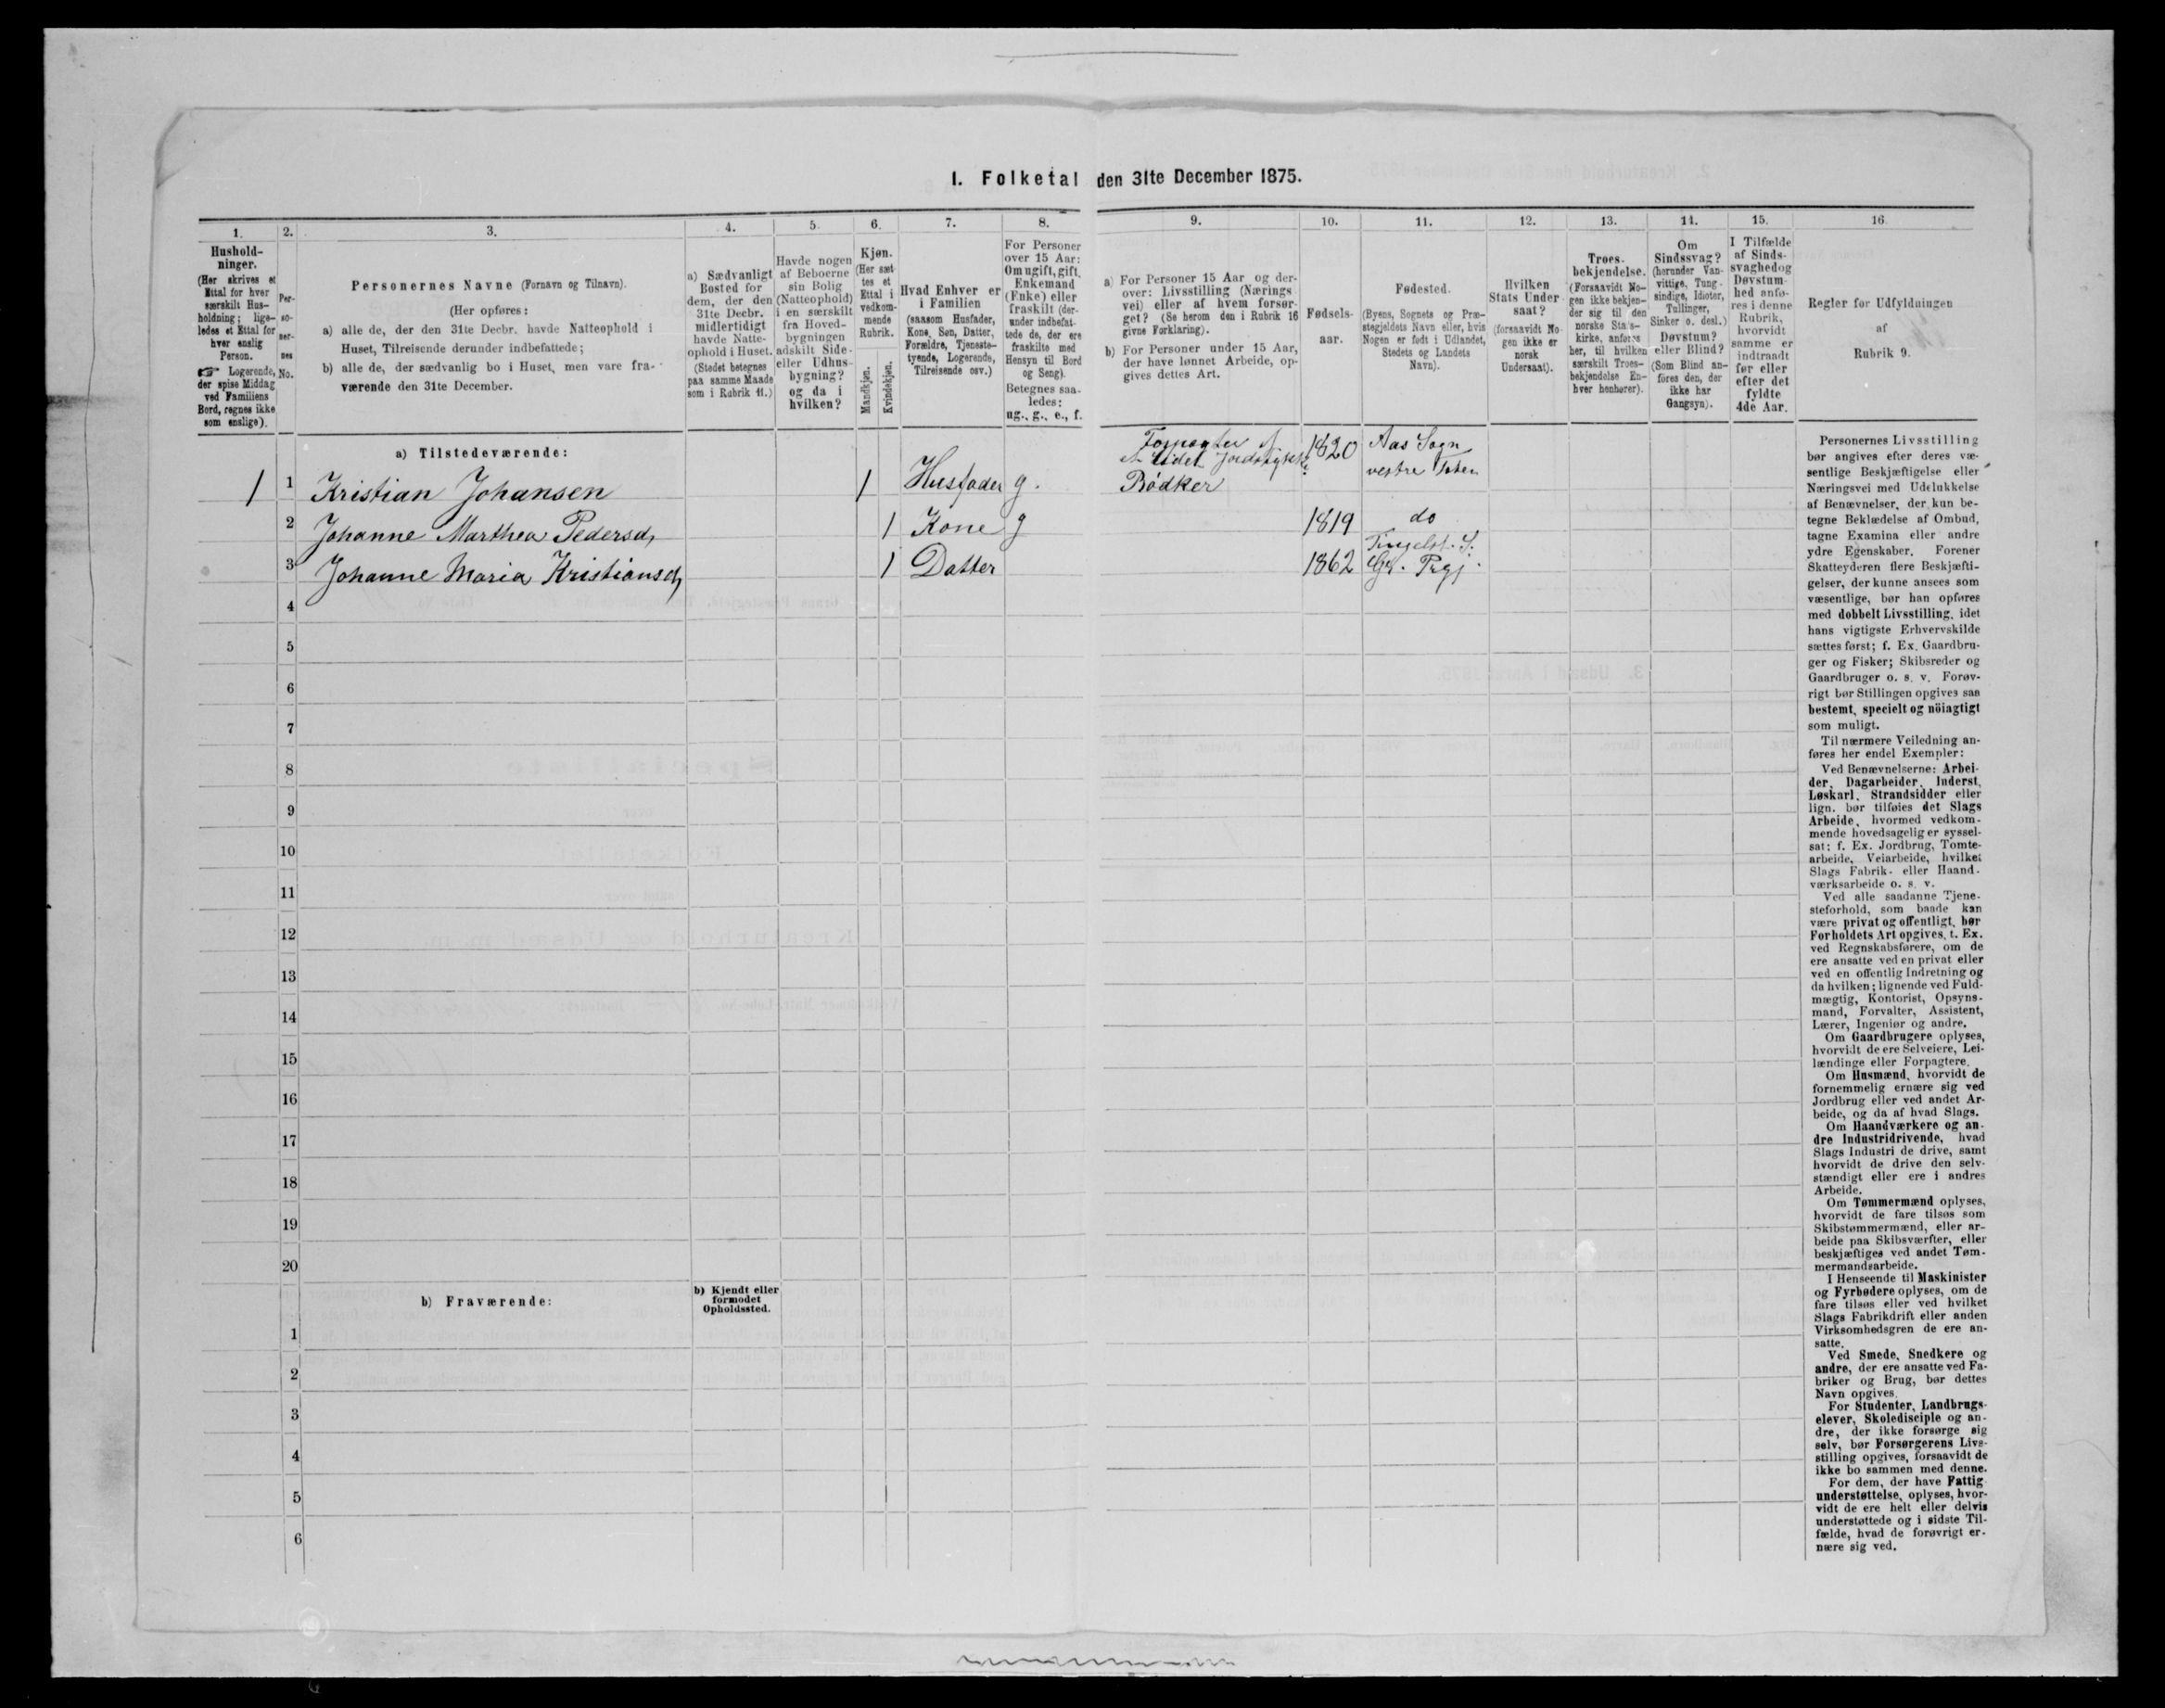 1. Folketal den 31te December 1875.
1.
Hushold-
ninger.
(Her skrives et
Ettal for hver
særskilt Hus-
holdning; lige-
ledes et Ettal for
hver enslig
Person.
☞ Logerende,
der spise Middag
ved Familiens
Bord, regnes ikke
som enslige).
2.
Per-
so-
ner-
nes
No.
3.
Personernes Navne (Fornavn og Tilnavn).
(Her opføres:
a) alle de, der den 31te Decbr. havde Natteophold i
Huset, Tilreisende derunder indbefattede;
b) alle de, der sædvanlig bo i Huset, men vare fra-
værende den 31te December.
4.
a) Sædvanligt
Bosted for
dem, der den
31te Decbr.
midlertidigt
havde Natte-
ophold i Huset.
(Stedet betegnes
paa samme Maade
som i Rubrik 11.)
5.
Havde nogen
af Beboerne
sin Bolig
(Natteophold)
i en særskilt
fra Hoved-
bygningen
adskilt Side-
eller Udhus-
bygning?
og da i
hvilken?
6.
Kjøn.
(Her sæt
tes et
Ettal i
vedkom-
mende
Rubrik.
Mandkjøn.
Kvindekjøn.
7.
Hvad Enhver er
i Familien
(saasom Husfader,
Kone, Søn, Datter,
Forældre, Tjeneste-
tyende, Logerende,
Tilreisende osv.)
8.
For Personer
over 15 Aar:
Om ugift, gift,
Enkemand
(Enke) eller
fraskilt (der-
under indbefat-
tede de, der ere
fraskilte med
Hensyn til Bord
og Seng).
Betegnes saa-
ledes:
ug., g., e., f.
9.
a) For Personer 15 Aar og der-
over: Livsstilling (Nærings
vei) eller af hvem forsør-
get? (Se herom den i Rubrik 16
givne Forklaring).
b) For Personer under 15 Aar,
der have lønnet Arbeide, op-
gives dettes Art.
10.
Fødsels-
aar.
11.
Fødested.
(Byens, Sognets og Præ-
stegjeldets Navn eller, hvis
Nogen er født i Udlandet,
Stedets og Landets
Navn).
12.
Hvilken
Stats Under
saat?
(forsaavidt No-
gen ikke er
norsk
Undersaat).
13.
Troes-
bekjendelse.
(Forsaavidt No-
gen ikke bekjen-
der sig til den
norske Stats-
kirke, anføres
her, til hvilken
særskilt Troes-
bekjendelse En-
hver henhører).
14.
Om
Sindssvag?
(herunder Van-
vittige, Tung-
sindige, Idioter,
Tullinger,
Sinker o. desl.)
Døvstum?
eller Blind?
(Som Blind an-
føres den, der
ikke har
Gangsyn).
15.
I Tilfælde
af Sinds-
svaghedog
Døvstum-
hed anfø-
res i denne
Rubrik,
hvorvidt
samme er
indtraadt
før eller
efter det
fyldte
4de Aar.
16
Regler for Udfyldningen
af
Rubrik 9.
a) Tilstedeværende:
1 1 Kristian Johansen 1 Husfader g. Forpagter af
et lidet Jordstykke
Bødker 1820 Aas Sogn
vestre Toten
2 Johanne Marthea Pedersd. 1 Kone g 1819 do
3 Johanne Maria Kristiansd. 1 Datter 1862 Tingelst. S.
Gr. Prgj.
4
5
6
7
8
9
10
11
12
13
14
15
16
17
18
19
20
b) Fraværende:
b) Kjendt eller
formodet
Opholdssted.
1
2
3
4
5
6
Personernes Livsstilling
bør angives efter deres væ-
sentlige Beskjæftigelse eller
Næringsvei med Udelukkelse
af Benævnelser, der kun be-
tegne Beklædelse af Ombud,
tagne Examina eller andre
ydre Egenskaber. Forener
Skatteyderen flere Beskjæfti-
gelser, der kunne ansees som
væsentlige, bør han opføres
med dobbelt Livsstilling, idet
hans vigtigste Erhvervskilde
sættes først; f. Ex. Gaardbru-
ger og Fisker; Skibsreder og
Gaardbruger o. s. v. Forøv-
rigt bør Stillingen opgives saa
bestemt, specielt og nöiagtigt
som muligt.
Til nærmere Veiledning an-
føres her endel Exempler:
Ved Benævnelserne: Arbei-
der, Dagarbeider, Inderst,
Løskarl, Strandsidder eller
lign. bør tilføies det Slags
Arbeide, hvormed vedkom-
mende hovedsagelig er syssel-
sat; f. Ex. Jordbrug, Tomte-
arbeide, Veiarbeide, hvilket
Slags Fabrik- eller Haand-
værksarbeide o. s. v.
Ved alle saadanne Tjene-
steforhold, som baade kan
være privat og offentligt, bør
Forholdets Art opgives, t. Ex.
ved Regnskabsførere, om de
ere ansatte ved en privat eller
ved en offentlig Indretning og
da hvilken; lignende ved Fuld-
mægtig, Kontorist, Opsyns-
mand, Forvalter, Assistent,
Lærer, Ingeniør og andre.
Om Gaardbrugere oplyses,
hvorvidt de ere Selveiere, Lei-
lændinge eller Forpagtere.
Om Husmænd, hvorvidt de
fornemmelig ernære sig ved
Jordbrug eller ved andet Ar-
beide, og da af hvad Slags.
Om Haandværkere og an-
dre Industridrivende, hvad
Slags Industri de drive, samt
hvorvidt de drive den selv-
stændigt eller ere i andres
Arbeide.
Om Tømmermænd oplyses,
hvorvidt de fare tilsøs som
Skibstømmermænd, eller ar-
beide paa Skibsværfter, eller
beskjæftiges ved andet Tøm-
mermandsarbeide.
I Henseende til Maskinister
og Fyrbødere oplyses, om de
fare tilsøs eller ved hvilket
Slags Fabrikdrift eller anden
Virksomhedsgren de ere an-
satte.
Ved Smede, Snedkere og
andre, der ere ansatte ved Fa-
briker og Brug, bør dettes
Navn opgives.
For Studenter, Landbrugs-
elever, Skoledisciple og an-
dre, der ikke forsørge sig
selv, bør Forsørgerens Livs-
stilling opgives, forsaavidt de
ikke bo sammen med denne.
For dem, der have Fattig
understøttelse, oplyses, hvor-
vidt de ere helt eller delvis
understøttede og i sidste Til-
fælde, hvad de forøvrigt er-
nære sig ved.